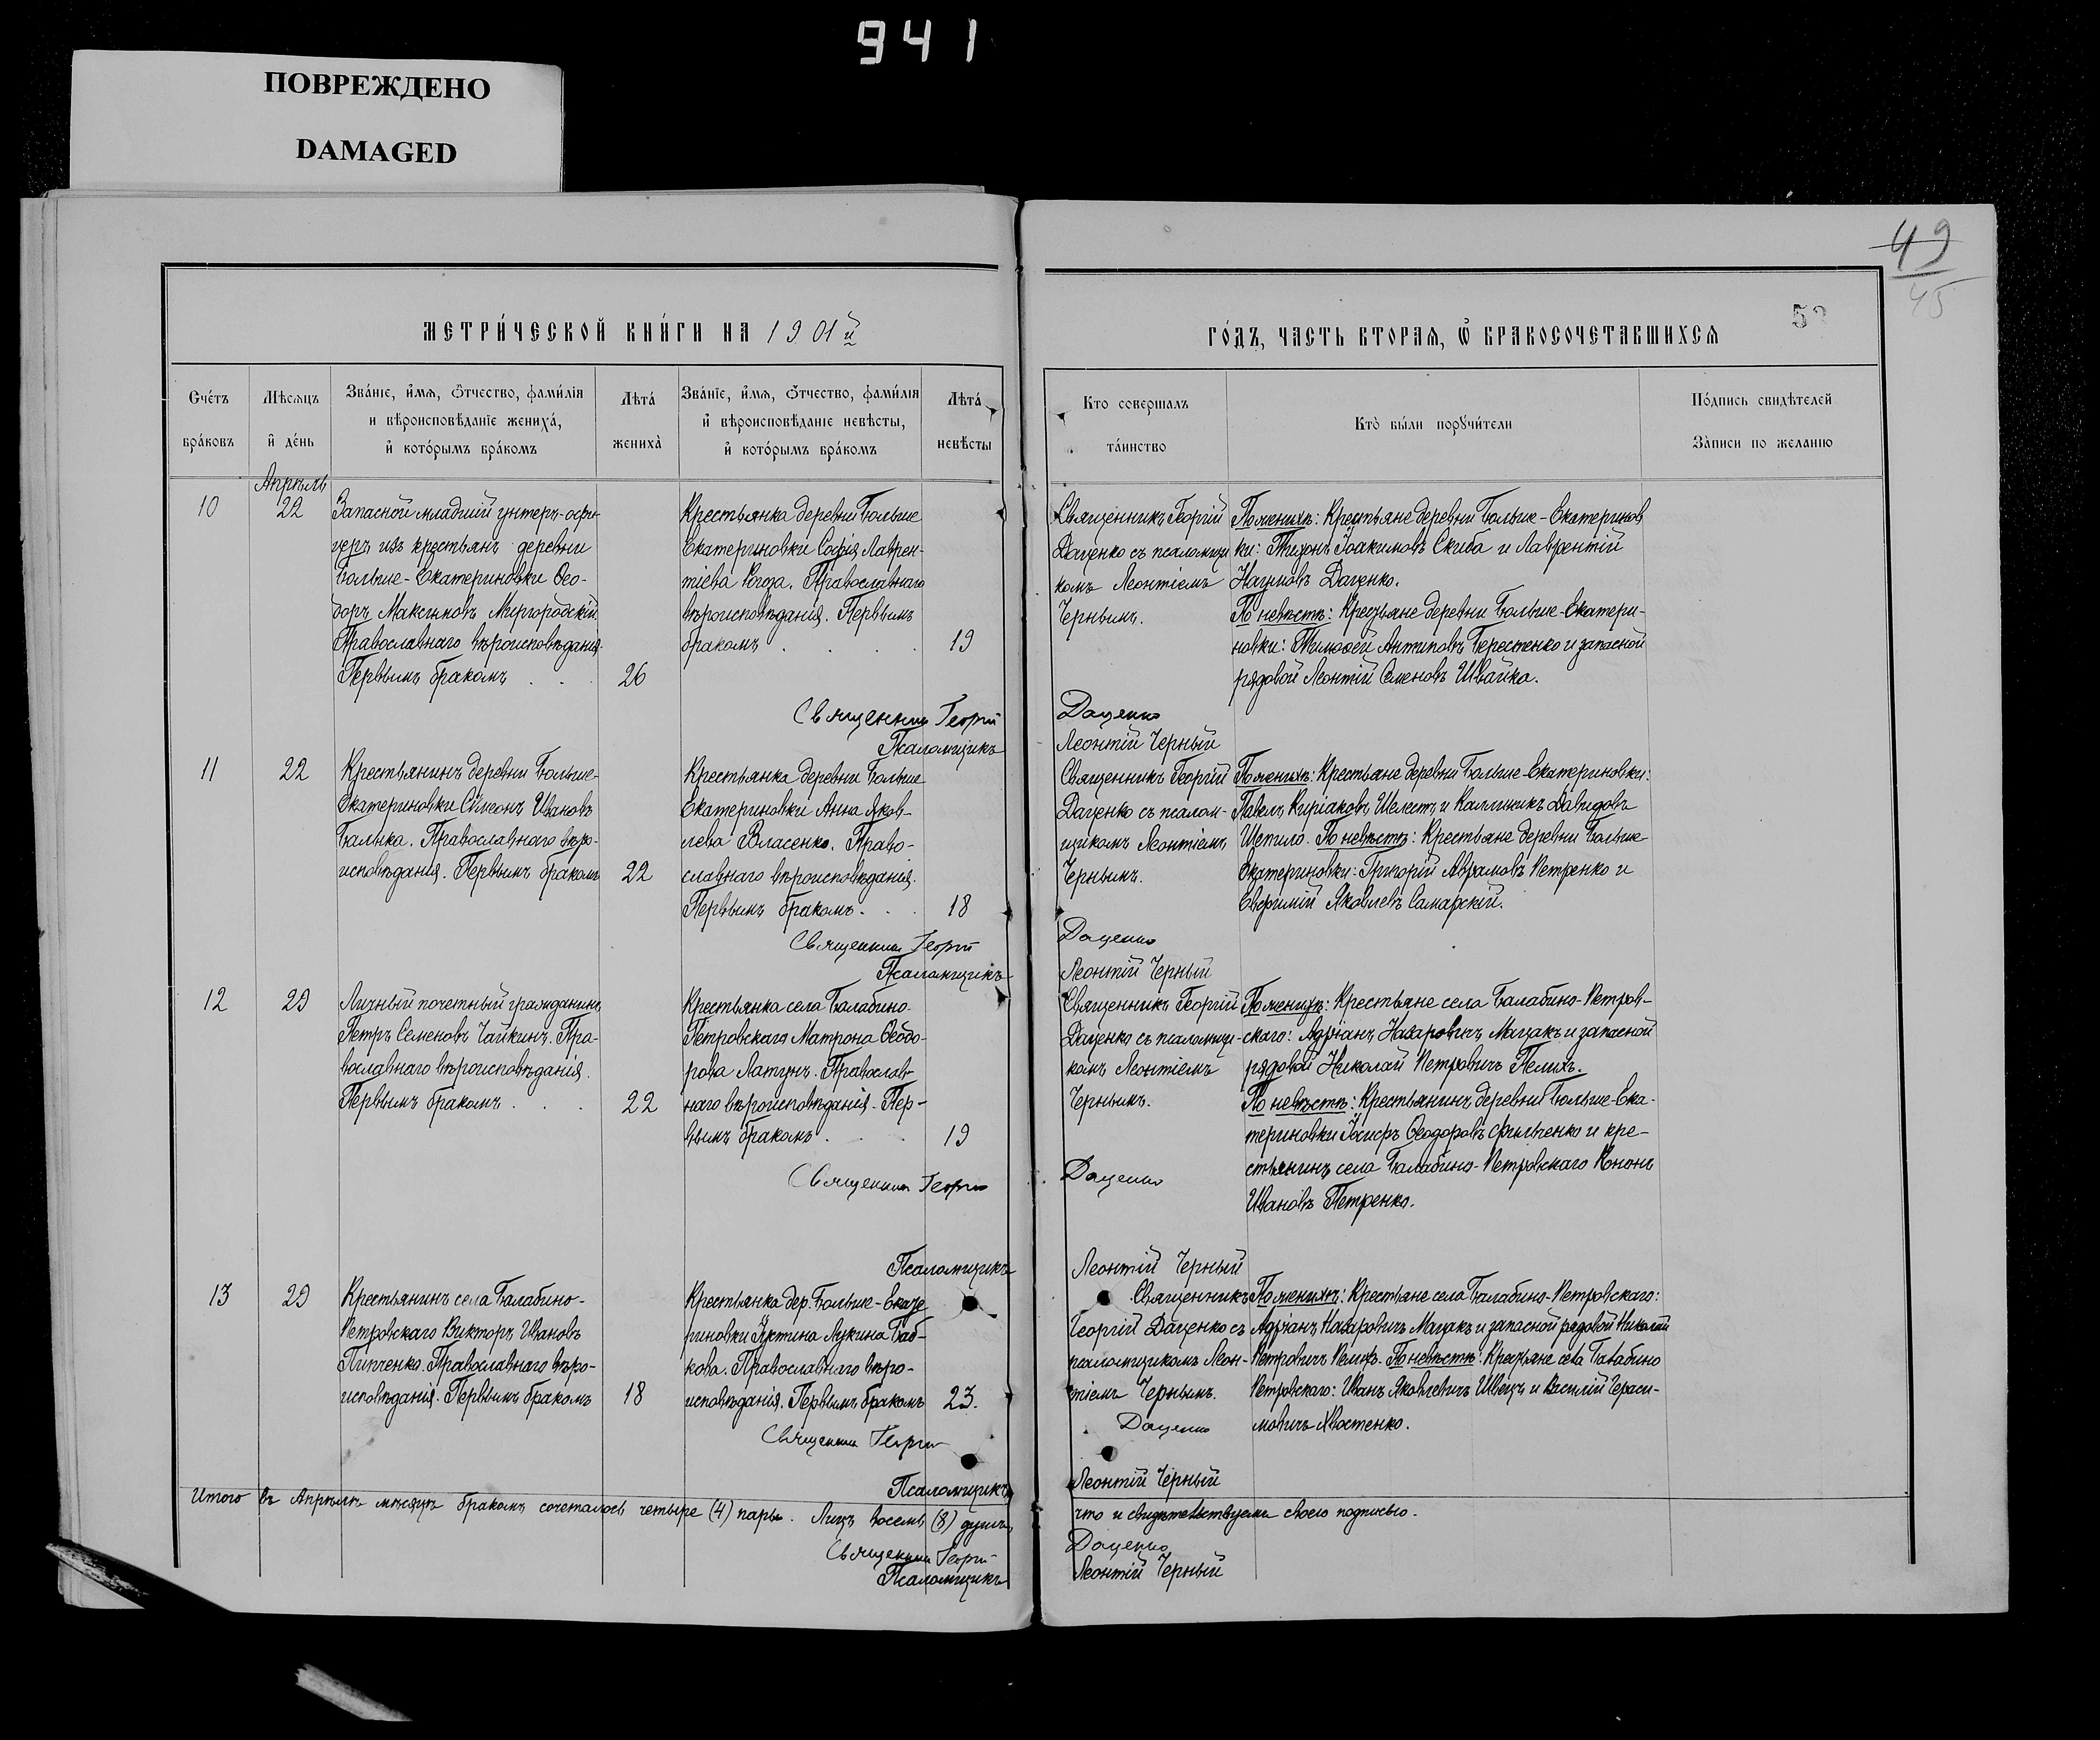 941
ПОВРЕЖДЕНО
DAMAGED
49
45
МЕТРИ́ЧЕСКОЙ КНИ́ГИ НА 1901й
ГО́ДЪ, ЧАСТЬ ВТОРАЯ, Ѡ БРАКОСОЧЕТАВШИХСЯ
Сче́тъ бра́ковъ
Мѣсяцъ и де́нь
Зва́нїе, и́мя, ѻ́тчество, фами́лїя и вѣроисповѣданїе жениха́, и кото́рымъ бра́комъ
Лѣта́ жениха̀
Зва́нїе, и́мя, ѻ́тчество, фами́лїя и вѣроисповѣданїе невѣсты, и кото́рымъ бра́комъ
Лѣта́ невѣсты
Кто совершалъ та́инство
Кто̀ бы́ли порꙋчи́тели
По́дпись свидѣтелей за́писи по желанїю
Апрѣль
10
22
Запасной младшій унтеръ-офи-
церъ изъ крестьянъ деревни
Больше-Екатериновки Ѳео-
доръ Максимовъ Миргородскій.
Православнаго вѣроисповѣданія.
Первымъ бракомъ . . .
26
Крестьянка деревни Больше
Екатериновки Софія Лаврен-
тіева Рогоза. Православнаго
вѣроисповѣданія. Первымъ
бракомъ . . . .
19
Священникъ Георгій
Даценко съ псаломщи
комъ Леонтіемъ
Чернымъ.
По женихѣ: Крестьяне деревни Больше-Екатеринов
ки: Тихонъ Іоакимовъ Скиба и Лаврентій
Наумовъ Даценко.
По невѣстѣ: Крестьяне деревни Больше-Екатери-
новки: Тимоѳей Антиповъ Берестенко и запасной
рядовой Леонтій Семеновъ Швайка.
Священникъ Георгій Даценко
Псаломщикъ Леонтій Черный
11
22
Крестьянинъ деревни Больше-
Екатериновки Сѵмеонъ Ивановъ
Балыка. Православнаго вѣро-
исповѣданія. Первымъ бракомъ
22
Крестьянка деревни Больше
Екатериновки Анна Яков-
лева Власенко. Право-
славнаго вѣроисповѣданія.
Первымъ бракомъ . . .
18
Священникъ Георгій
Даценко съ псалом-
щикомъ Леонтіемъ
Чернымъ.
По женихѣ: Крестьяне деревни Больше-Екатериновки:
Павелъ Киріаковъ Шелестъ и Каллиникъ Давидовъ
Шепило. По невѣстѣ: Крестьяне деревни Больше
Екатериновки: Григорій Аврамовъ Петренко и
Евфимій Яковлевъ Самарскій.
Священникъ Георгій Даценко
Псаломщикъ Леонтій Черный
12
29
Личный почетный гражданинъ
Петръ Семеновъ Чайкинъ. Пра-
вославнаго вѣроисповѣданія.
Первымъ бракомъ . . .
22
Крестьянка села Балабино-
Петровскаго Матрона Ѳеодо-
рова Латунъ. Православ-
наго вѣроисповѣданія. Пер-
вымъ бракомъ . . .
19
Священникъ Георгій
Даценко съ псаломщи-
комъ Леонтіемъ
Чернымъ.
По женихѣ: Крестьяне села Балабино-Петров-
скаго: Адріанъ Назаровичъ Мацакъ и запасной
рядовой Николай Петровичъ Пелихъ.
По невѣстѣ: Крестьянинъ деревни Больше-Ека-
териновки Іосифъ Ѳеодоровъ Фильченко и кре-
стьянинъ села Балабино-Петровскаго Кононъ
Ивановъ Петренко.
Священникъ Георгій Даценко
Псаломщикъ Леонтій Черный
13
29
Крестьянинъ села Балабино-
Петровскаго Викторъ Ивановъ
Пипченко. Православнаго вѣро-
исповѣданія. Первымъ бракомъ
18
Крестьянка дер. Больше-Екате
риновки Іустина Лукина Баб-
кова. Православнаго вѣро-
исповѣданія. Первымъ бракомъ
23.
Священникъ
Георгій Даценко съ
псаломщикомъ Леон-
тіемъ Чернымъ.
По женихѣ: Крестьяне села Балабино-Петровскаго:
Адріанъ Назаровичъ Мацакъ и запасной рядовой Николай
Петровичъ Пелихъ. По невѣстѣ: Крестьяне села Балабино
Петровскаго: Иванъ Яковлевичъ Швецъ и Василій Гераси-
мовичъ Хвостенко.
Священникъ Георгій Даценко
Псаломщикъ Леонтій Черный
Итого въ Апрѣлѣ мѣсяцѣ бракомъ сочеталось четыре (4) пары. Лицъ восемь (8) душъ, что и свидѣтельствуемъ своею подписью.
Священникъ Георгій Даценко
Псаломщикъ Леонтій Черный